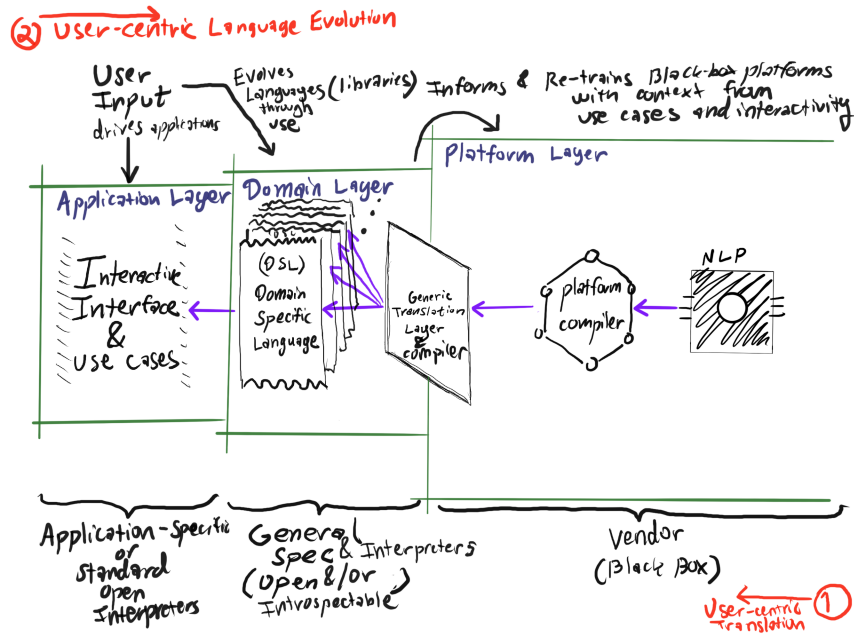 ② User-centric Language Evolution
User
Input
drives applications
Evolves
Languages (libraries)
through
use
Informs & Re-trains Black-box platforms
with context from
use cases and interactivity
Application Layer
Domain Layer
Platform Layer
Interactive
Interface
&
use cases
DSL
(DSL)
Domain
Specific
Language
Generic
Translation
Layer
&
compiler
platform
compiler
NLP
Application-Specific
or
Standard
open
Interpreters
General
Spec & Interpreters
(open &/or
Introspectable)
Vendor
(Black Box)
User-centric
Translation
①